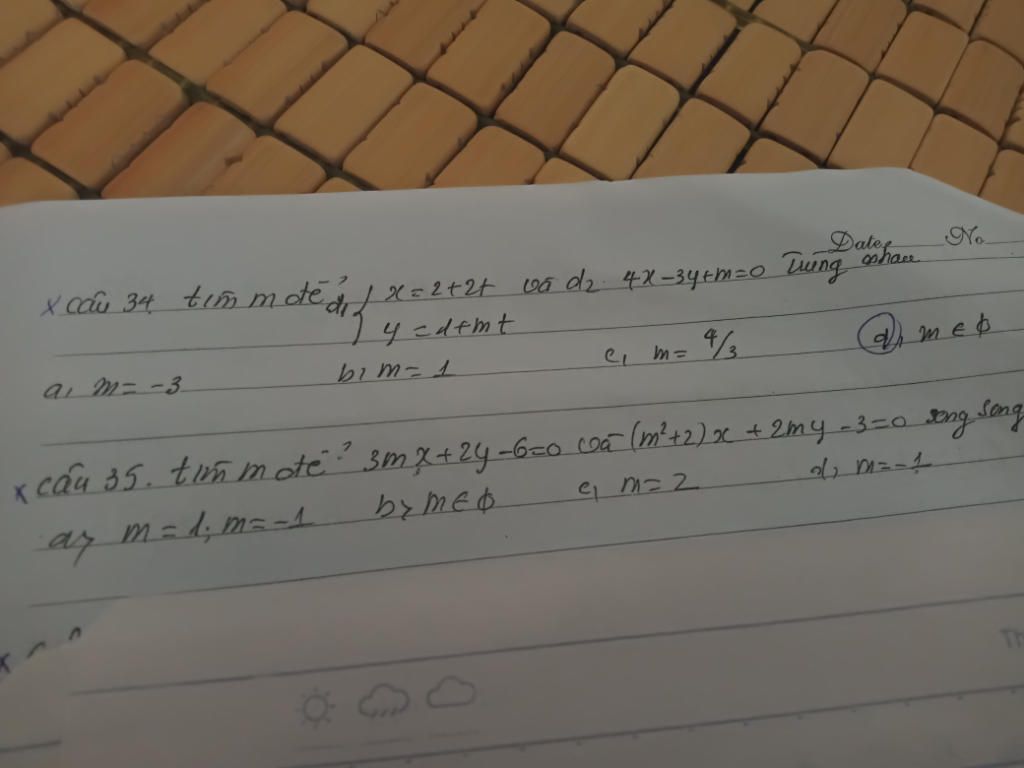 Date No
x câu 34. tìm m để d1 { x = 2+2t và d2 4x-3y+m=0 trùng nhau
y = 1+mt
a, m = -3 b, m = 1 c, m = 4/3 d, m ∈ ϕ
x câu 35. tìm m để 3mx+2y-6=0 và (m²+2)x + 2my -3=0 song song
a, m = 1; m = -1 b, m ∈ ϕ c, m = 2 d, m = -1
Th